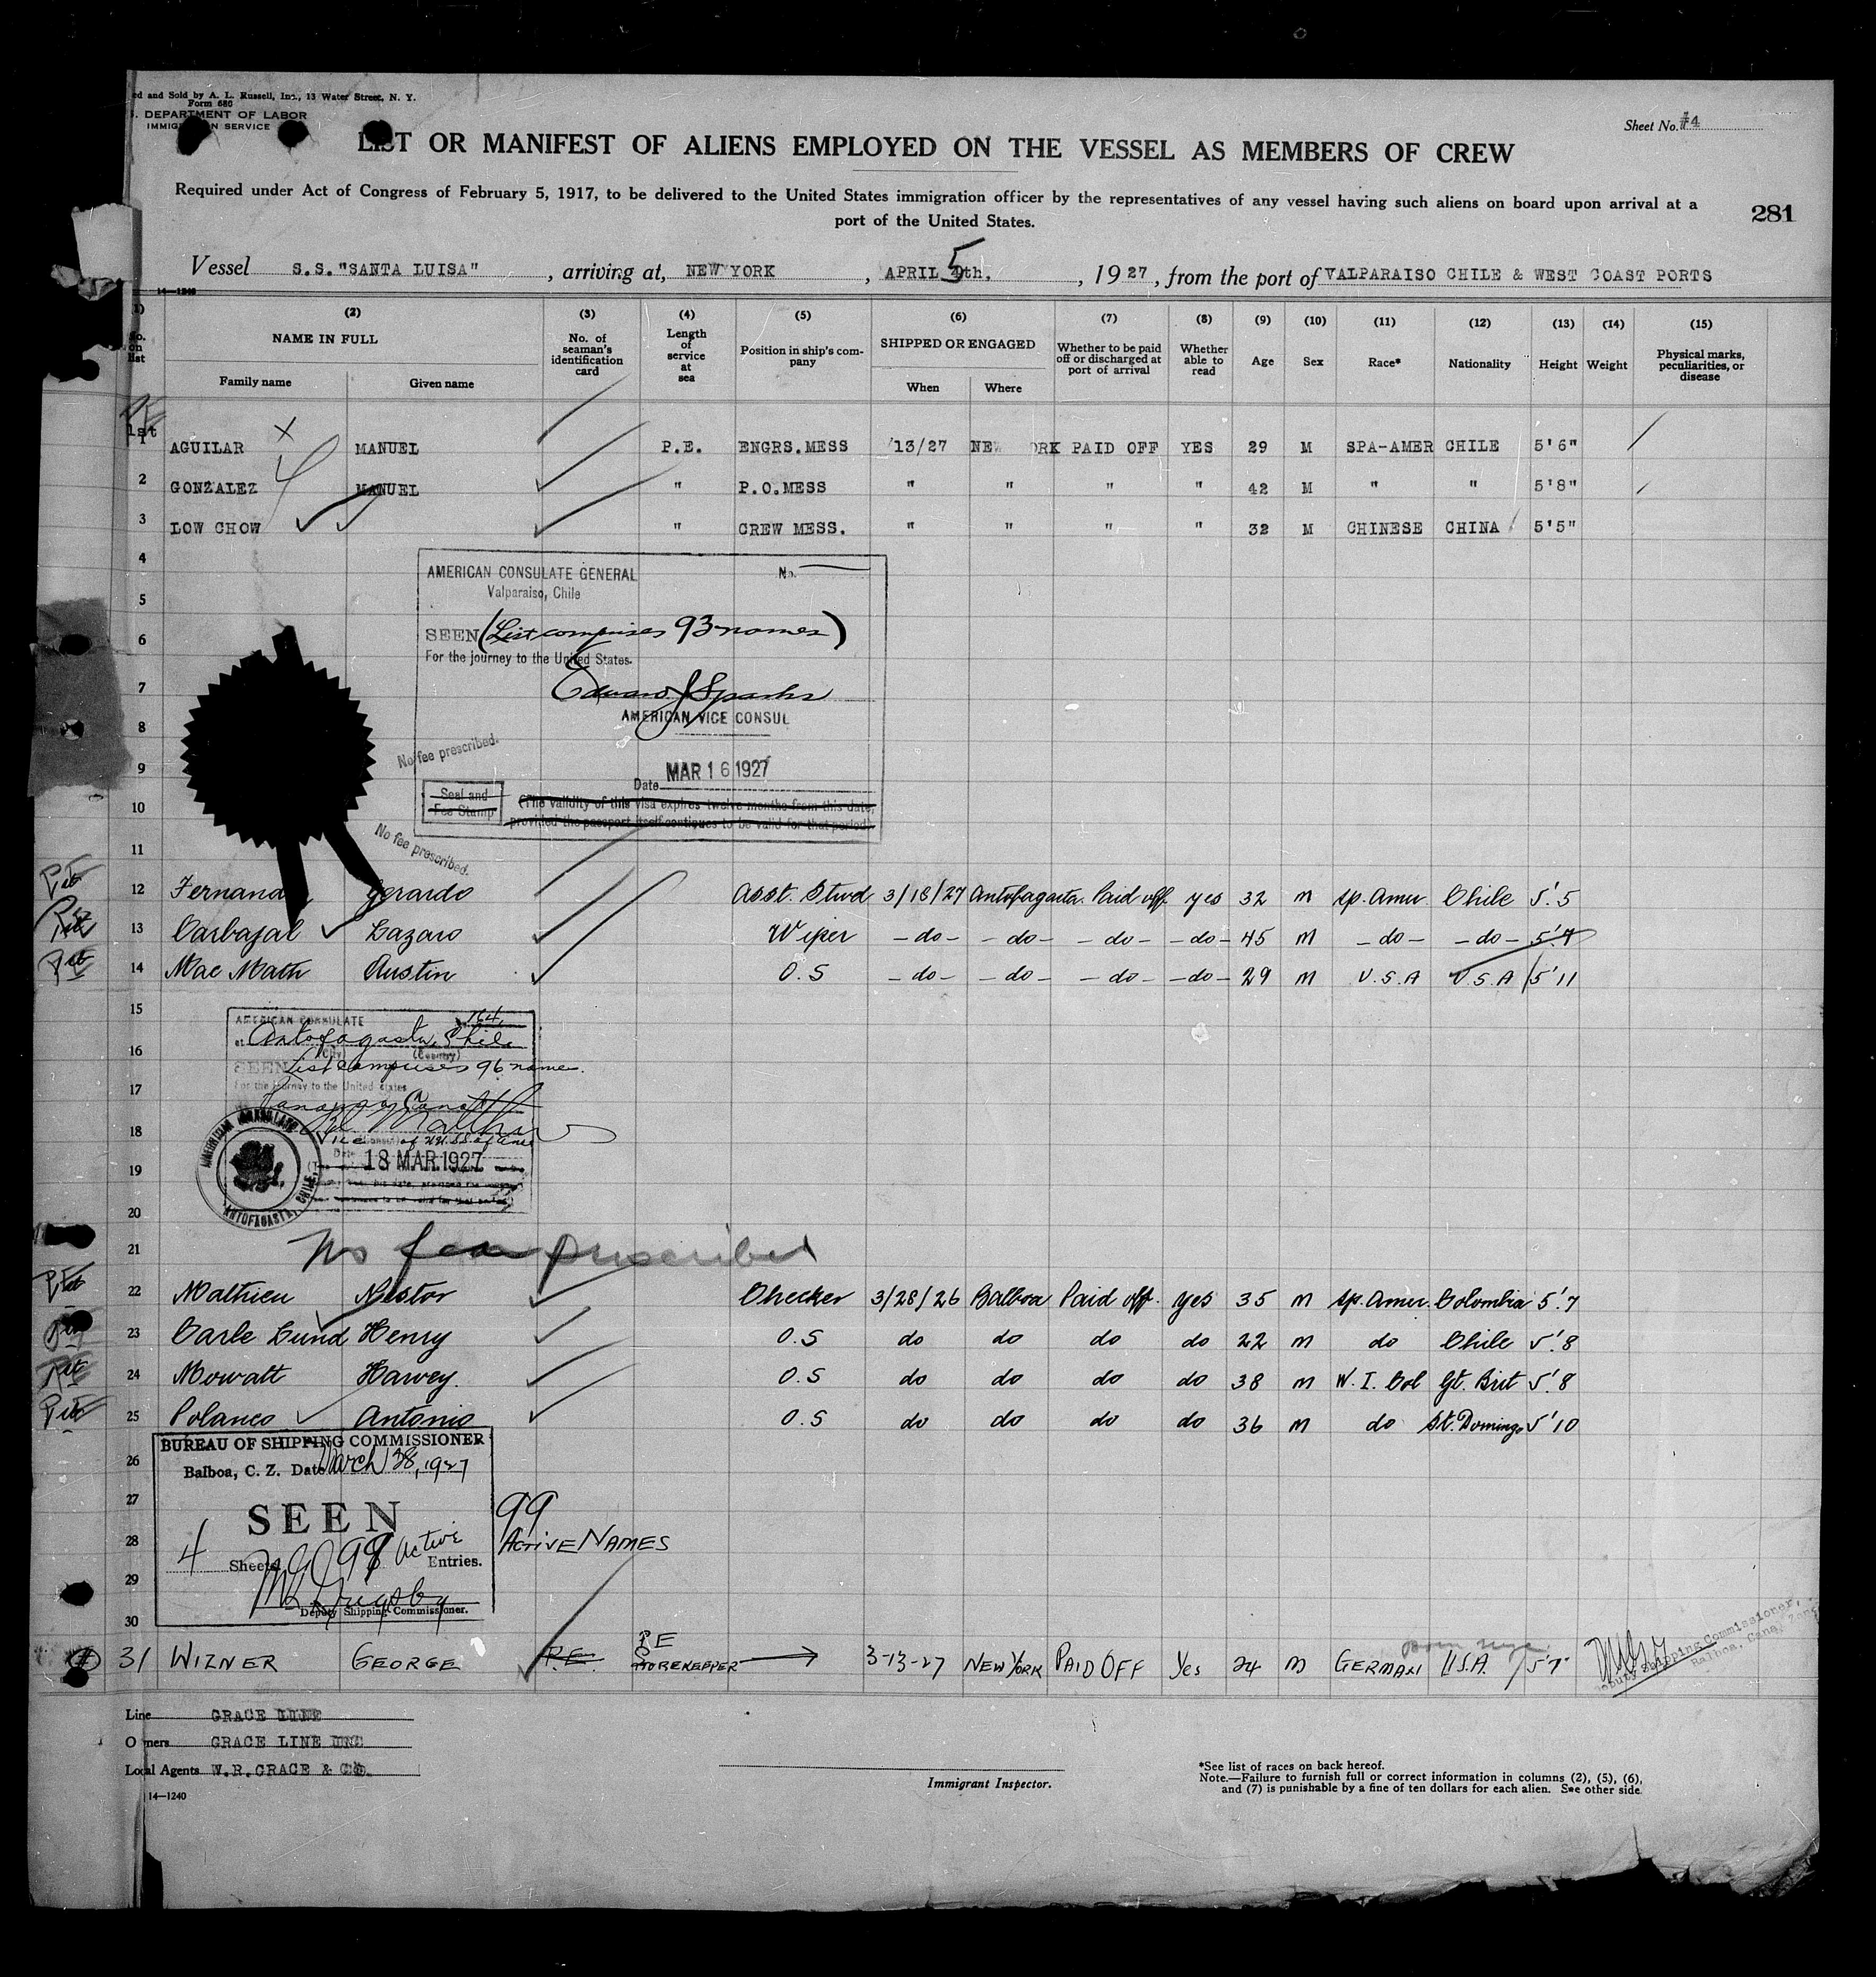 ed and Sold by A. L. Russell, Inc., 13 Water Street, N. Y.
Form 686
DEPARTMENT OF LABOR
IMMIGRATION SERVICE
Sheet No. #4
LIST OR MANIFEST OF ALIENS EMPLOYED ON THE VESSEL AS MEMBERS OF CREW
Required under Act of Congress of February 5, 1917, to be delivered to the United States immigration officer by the representatives of any vessel having such aliens on board upon arrival at a
port of the United States.
281
Vessel S.S."SANTA LUISA", arriving at, NEW YORK, APRIL 5th., 1927, from the port of VALPARAISO CHILE & WEST COAST PORTS
14—1240
(2) (3) (4) (5) (6) (7) (8) (9) (10) (11) (12) (13) (14) (15)
No. on list
NAME IN FULL
Family name Given name
No. of seaman's identification card
Length of service at sea
Position in ship's company
SHIPPED OR ENGAGED
When Where
Whether to be paid off or discharged at port of arrival
Whether able to read
Age Sex Race* Nationality Height Weight
Physical marks, peculiarities, or disease
1st
1 AGUILAR MANUEL P.E. ENGRS.MESS 13/27 NEW YORK PAID OFF YES 29 M SPA-AMER CHILE 5'6"
2 GONZALEZ MANUEL " P.O.MESS " " " " 42 M " " 5'8"
3 LOW CHOW " CREW MESS. " " " " 32 M CHINESE CHINA 5'5"
4
AMERICAN CONSULATE GENERAL No.
Valparaiso, Chile
5
6 SEEN (List comprises 93 names)
For the journey to the United States.
7 Edward J Sparks
AMERICAN VICE CONSUL
8
No fee prescribed.
9 Date MAR 16 1927
Seal and Fee Stamp
(The validity of this visa expires twelve months from this date,
provided the passport itself continues to be valid for that period)
10
No fee prescribed.
11
12 Gerardo Asst. Stwd 3/18/27 Antofagasta Paid off yes 32 m Sp. Amer Chile 5'.5
13 Carbajal Lazaro Wiper -do- -do- -do- -do- 45 m -do- -do- 5'7
14 Mac Math Austin O.S -do- -do- -do- -do- 29 m U.S.A U.S.A 5'11
15
AMERICAN CONSULATE
at Antofagasta, Chile
(City) (Country)
16
SEEN List comprises 96 names.
For the journey to the United States
17
18
18 MAR. 1927
19
AMERICAN CONSULATE ANTOFAGASTA, CHILE
20
21 No fee prescribed
22 Mathieu Nestor Checker 3/28/26 Balboa Paid off. yes 35 m Sp. Amer. Colombia 5'.7
23 Carle Lund Henry O.S do do do do 22 m do Chile 5'.8
24 Mowatt Harvey. O.S do do do do 38 m W. I. Col Gt. Brit 5'.8
25 Polanco Antonio O.S do do do do 36 m do St. Domingo 5'10
BUREAU OF SHIPPING COMMISSIONER
26
Balboa, C. Z. Date March 28, 1927
27
SEEN
99
ACTIVE NAMES
28
4 Sheets 98 active Entries.
29
Deputy Shipping Commissioner.
30
31 WIZNER GEORGE P.E. PE STOREKEEPER 3-13-27 NEW YORK PAID OFF Yes 24 M GERMAN U.S.A. 5'7"
Deputy Shipping Commissioner,
Balboa, Canal Zone
Line GRACE LINE
Owners GRACE LINE INC
Local Agents W.R.GRACE & CO.
14—1240
Immigrant Inspector.
*See list of races on back hereof.
Note.—Failure to furnish full or correct information in columns (2), (5), (6),
and (7) is punishable by a fine of ten dollars for each alien. See other side.